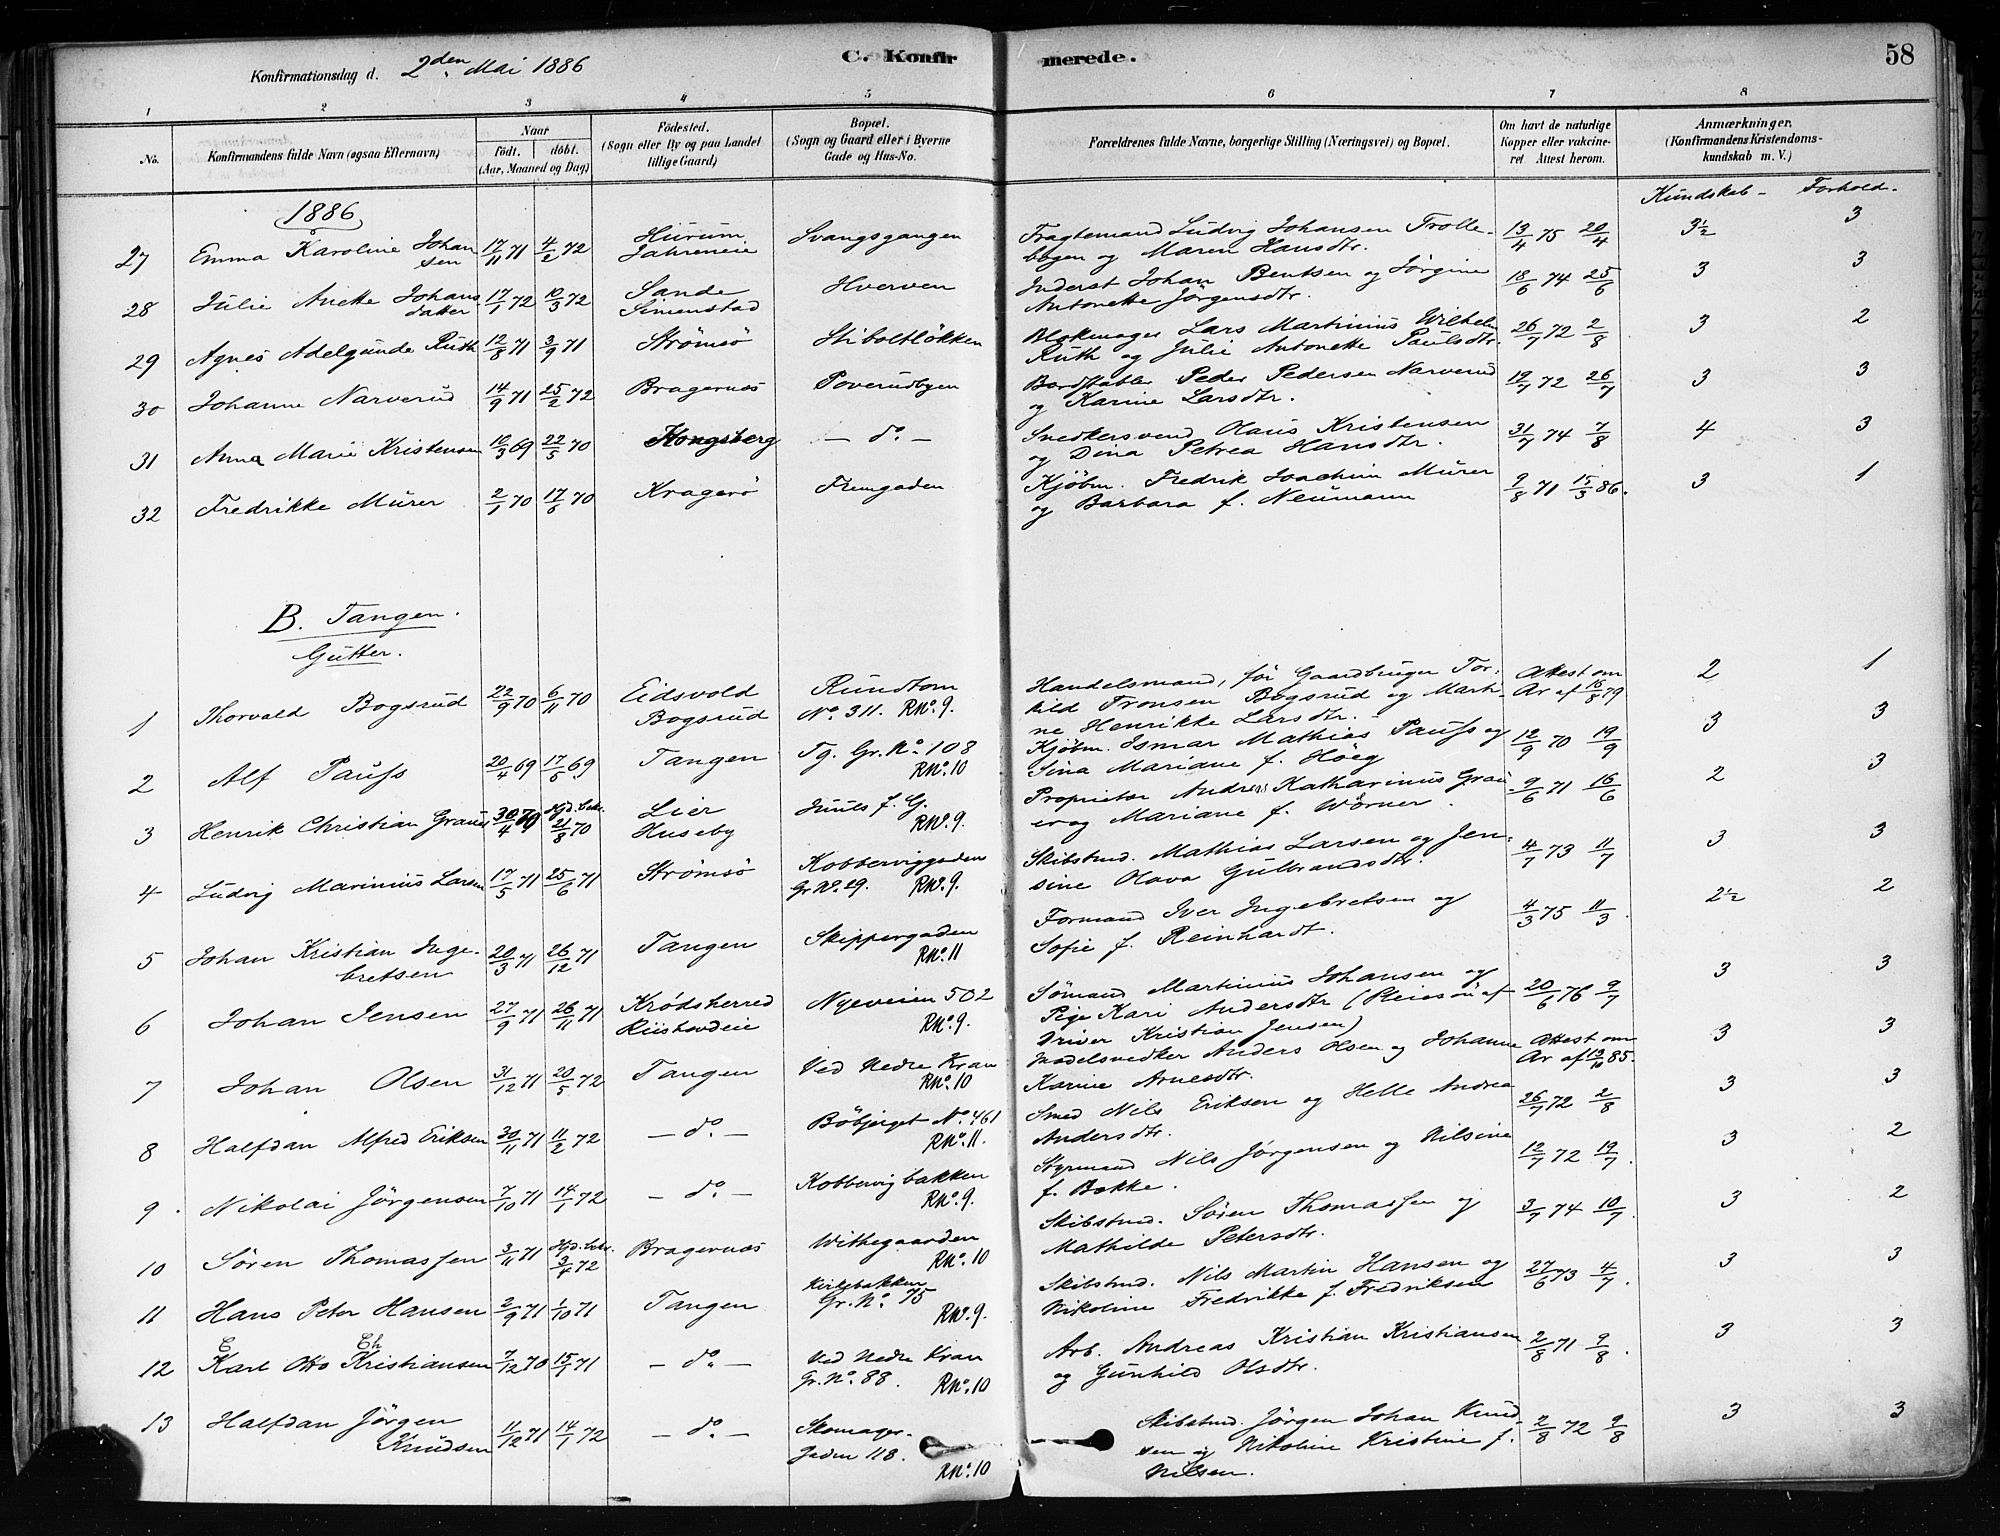 Konfirmationsdag d. 2den Mai 1886
C. Konfirmerede.
58
1 2 3 4 5 6 7 8
No.
Konfirmandens fulde Navn (ogsaa Efternavn)
Naar
födt. döbt.
(Aar, Maaned og Dag)
Födested.
(Sogn eller By og paa Landet
tillige Gaard)
Bopæl.
(Sogn og Gaard eller i Byerne
Gade og Hus-No.
Forældrenes fulde Navne, borgerlige Stilling (Næringsvei) og Bopæl.
Om havt de naturlige
Kopper eller vakcine-
ret Attest herom.
Anmærkninger.
(Konfirmandens Kristendoms-
kundskab m. V.)
Kundskab - Forhold.
1886
27 Emma Karoline Johan 17/11 71 4/2 72 Hurum Svangsgangen Fragtemand Ludvig Johansen Trolle- 13/4 75 20/4 3½ 3
sen Jahreneie bogen og Maren Hansdtr.
28 Julie Anette Johans 17/1 72 10/3 72 Sande Hverven Inderst Johan Bentsen og Jörgine 18/6 74 25/6 3 3
datter Simenstad Antonette Jörgensdtr.
29 Agnes Adelgunde Ruth 12/8 71 3/9 71 Strömsö Stiboltlökken Blokmager Lars Martinius Wilhelm 26/7 72 2/8 3 2
Ruth og Julie Antonette Paulsdtr.
30 Johanne Narverud 14/9 71 25/2 72 Bragernæs Poverudbyen Bordstabler Peder Pedersen Narverud 19/7 72 26/7 3 3
og Karine Larsdtr.
31 Anna Marie Kristensen 10/3 69 22/5 70 Kongsberg - do. - Snedkersvend Olaus Kristensen 31/7 74 7/8 4 3
og Dina Petrea Hansdtr.
32 Fredrikke Murer 2/1 70 17/6 70 Kragerö Fremgaden Kjöbm. Fredrik Joachim Murer 9/8 71 15/3 86. 3 1
og Barbara f. Neumann
B. Tangen.
Gutter.
1 Thorvald Bogsrud 22/9 70 6/11 70 Eidsvold Rundtom Handelsmand, för Gaardbruger Tor- Attest om 2 1
Bogsrud No. 311. RNo. 9. kild Tronsen Bogsrud og Marti- Ar af 16/8 79
ne Henrikke Larsdtr.
2 Alf Pauss 20/4 69 17/6 69 Tangen Tg. Gr. No. 108 Kjöbm. Ismar Mathias Pauss og 12/9 70 19/9 3 3
RNo. 10 Sina Mariane f. Höeg
3 Henrik Christian Grauer 30/4 70 Hjd. bekr. Lier Inuls f. G. Proprietær Andreas Katharinus Grau 9/6 71 16/6 2 3
21/8 70 Huseby RNo. 9. er og Mariane f. Wörner.
4 Ludvig Marinius Larsen 17/5 71 25/6 71 Strömsö Kobberviggaden Skibstmd. Mathias Larsen og Jen- 4/7 73 11/7 3 3
Gr No. 29. RNo. 9. sine Olava Gulbrandsdtr.
5 Johan Kristian Inge- 20/3 71 26/12 71 Tangen Skippergaden Formand Iver Ingebretsen og 4/3 75 11/3. 2½ 2
bretsen RNo. 11 Sofie f. Reinhardt.
6 Johan Jensen 27/9 71 26/11 71 Krödsherred Nyeveien 502 Sömand Martinius Johansen og 20/6 76 9/7 3 3
RNo. 9. Pige Kari Andersdtr
Driver Kristian Jensen)
7 Johan Olsen 31/12 71 20/5 72 Tangen Ved Nedre Kran Anders Olsen og Johanne Attest om 3 3
RNo. 10 Karine Arnesdtr. Ar af 19/10 85.
8 Halfdan Alfred Eriksen 30/11 71 11/2 72 - do. - Böbjerget No. 461 Smed Nils Eriksen og Helle Andrea 26/7 72 2/8 3 3
RNo. 11. Andersdtr.
9 Nikolai Jörgensen 7/10 71 14/1 72 - do. - Kobbervigbakken Styrmand Nils Jörgensen og Nilsine 12/7 72 19/7 3 2
RNo. 9. f. Bakke.
10 Sören Thomassen 3/11 71 Hjd. bekr. Bragernæs Withegaarden Skibstmd. Sören Thomassen og 3/7 74 10/7 3 2
3/4 72 RNo. 10 Mathilde Petersdtr.
11 Hans Peter Hansen 2/9 71 1/10 71 Tangen Kirkebakken Skibstmd. Nils Martin Hansen og 27/6 73 4/7. 3 3
Gr. No. 75 RNo. 9. Nikoline Fredrikke f. Fredriksen
C Ch
12 Karl Otto Kristiansen 7/12 70 15/1 71 - do. - Ved Nedre Kran Arb. Andreas Kristian Kristiansen 2/8 71 9/8. 3 3
Gr. No. 88. RNo. 10 og Gunhild Olsdtr.
13 Halfdan Jörgen 11/12 71 14/1 72 - do. - Skomager- Skibstmd. Jörgen Johan Knud- 2/8 72 9/8 3 3
Knudsen gaden 118. sen og Nikoline Kristine f.
RNo. 10 Nilsen.